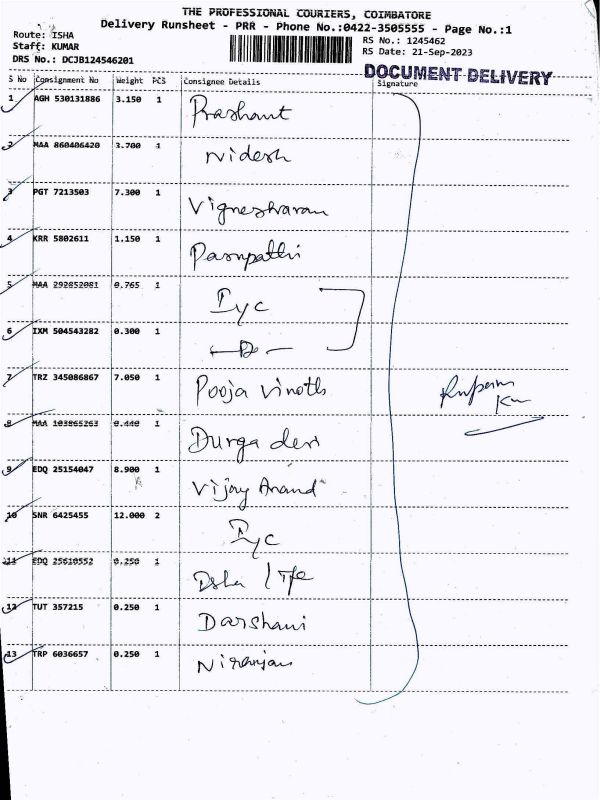 THE PROFESSIONAL COURIERS, COIMBATORE
Delivery Runsheet - PRR - Phone No.:0422-3505555 - Page No.:1
Route: ISHA
RS No.: 1245462
Staff: KUMAR
RS Date: 21-Sep-2023
DRS No.: DCJB124546201
DOCUMENT DELIVERY
S No Consignment No Weight PCS Consignee Details Signature
1 AGH 530131886 3.150 1 Prashant
2 MAA 860406420 3.700 1 Nidesh
3 PGT 7213503 7.300 1 Vigneshwaran
4 KRR 5802611 1.150 1 Pasupathi
5 MAA 292852081 0.765 1 Iyc
6 IXM 504543282 0.300 1
7 TRZ 345086867 7.050 1 Pooja Vinoth
8 MAA 103865263 0.440 1 Durga devi
9 EDQ 25154047 8.900 1 Vijay Anand
10 SNR 6425455 12.000 2 Iyc
11 EDQ 25610552 0.250 1 Isha life
12 TUT 357215 0.250 1 Darshani
13 TRP 6036657 0.250 1 Niranjan